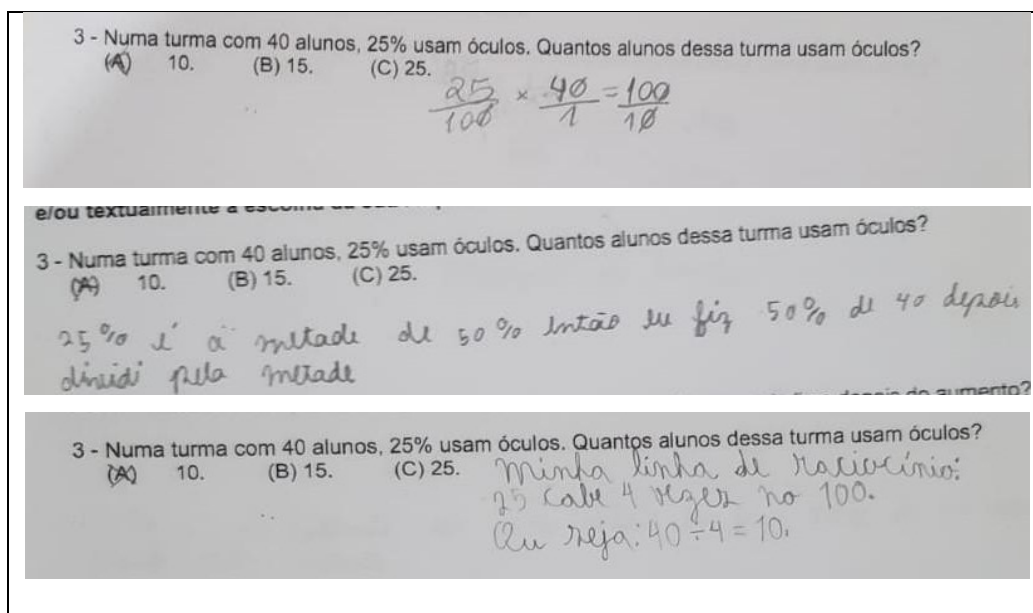 3 - Numa turma com 40 alunos, 25% usam óculos. Quantos alunos dessa turma usam óculos?
(A) 10. (B) 15. (C) 25.
25/100 × 40/1 = 100/10
e/ou textualmente a
3 - Numa turma com 40 alunos, 25% usam óculos. Quantos alunos dessa turma usam óculos?
(A) 10. (B) 15. (C) 25.
25% é a metade de 50% então eu fiz 50% de 40 depois
dividi pela metade
do aumento?
3 - Numa turma com 40 alunos, 25% usam óculos. Quantos alunos dessa turma usam óculos?
(A) 10. (B) 15. (C) 25. Minha linha de raciocínio:
25 cabe 4 vezes no 100.
Ou seja: 40 ÷ 4 = 10.